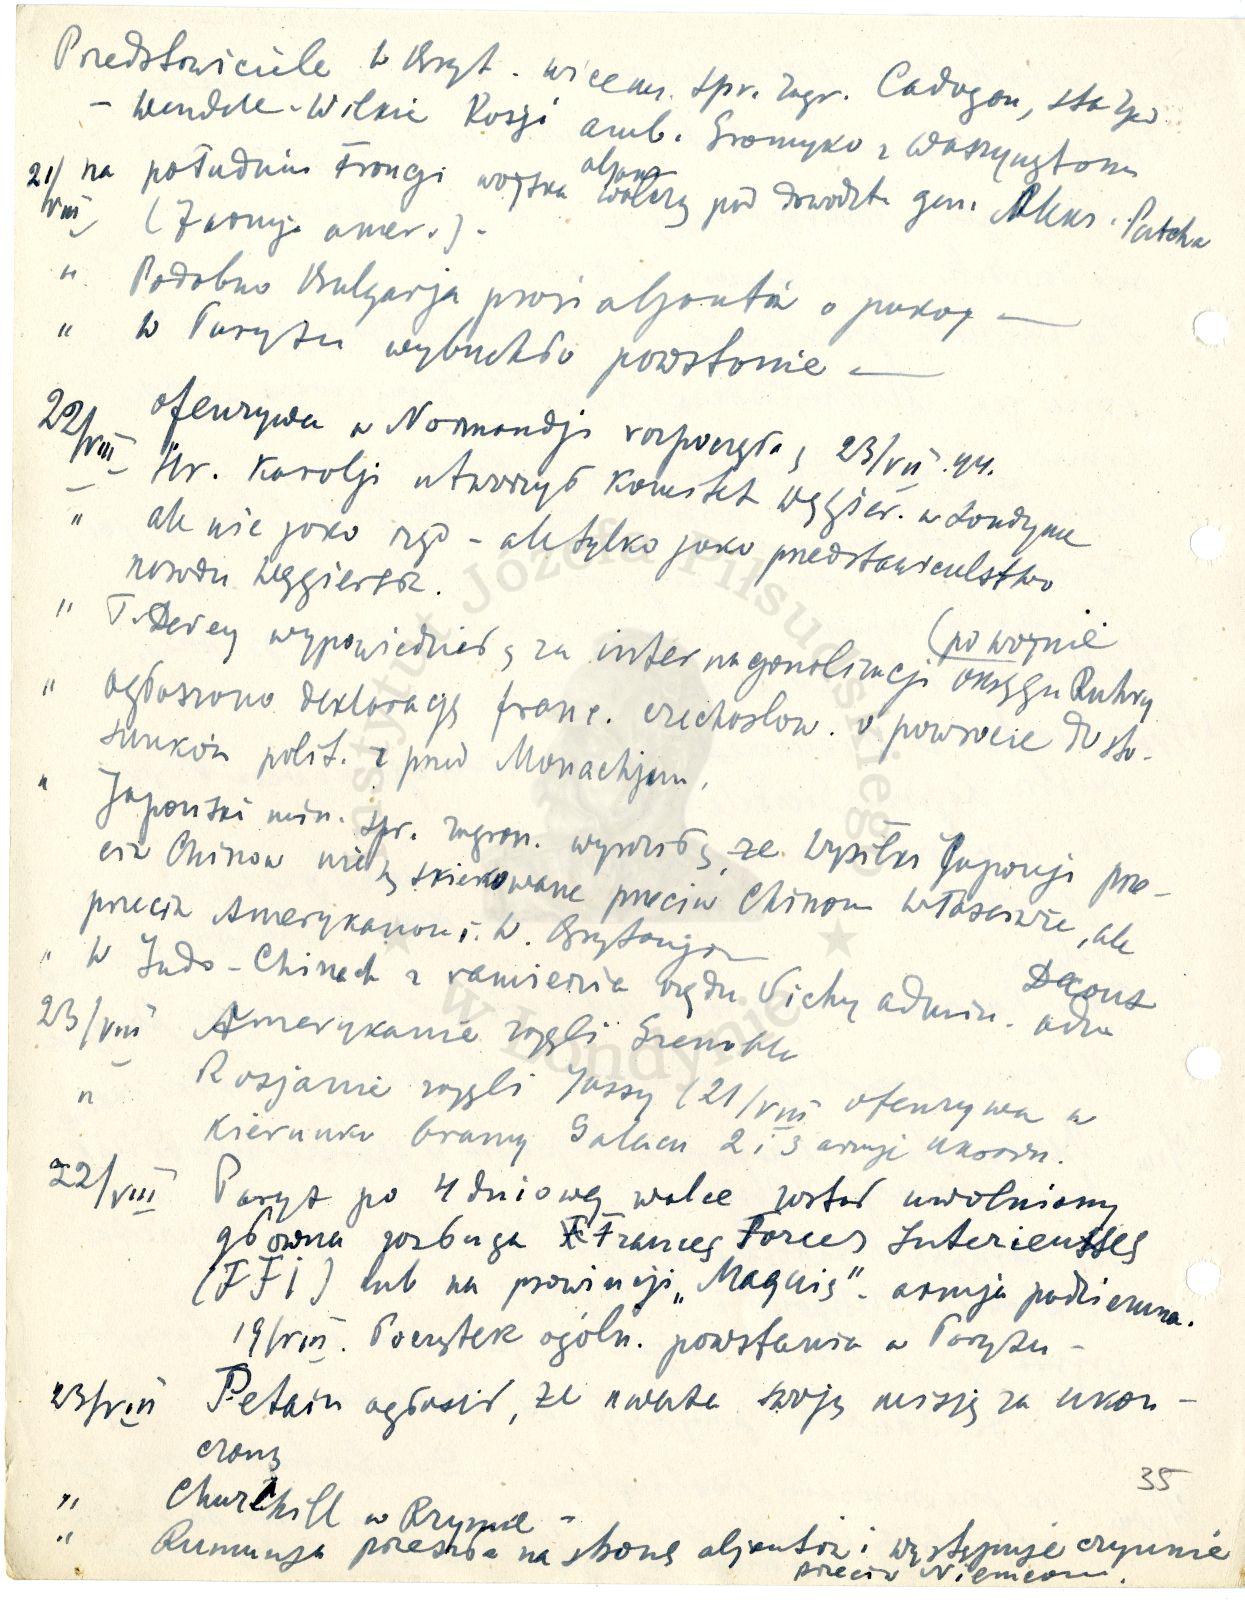 Przedstawiciele W Bryt. wicemin. spr. zagr. Cadogan,
– Wendell-Wilkie Rosji amb. Gromyko z Waszyngtonu
21/VIII na południu Francji wojska aljanc. walczą pod dowództ. gen. Aleks. Patcha
(7 armja amer.).
" Podobno Bulgarja prosi aljantów o pokoj —
" W Paryżu wybuchło powstanie —
22/VIII ofenzywa w Normandji rozpoczęła się 23/VII.44.
Hr. Karolji utworzył Komitet Węgier. w Londynie
" ale nie jako rząd – ale tylko jako przedstawicielstwo
narodu węgiersk.
" T. Dewey wypowiedział się za internacjonalizacją (po wojnie okręgu Ruhry
" ogłoszono deklarację franc. czechosłow. o powrocie do sto-
sunków polit. z przed Monachjum.
" Japoński min. spr. zagran. wyraził się, że wysiłki Japonji prze-
ciw Chinom nie są skierowane przeciw Chinom właściwie, ale
przeciw Amerykanom i W. Brytanji
" W Indo-Chinach z ramienia rządu Vichy admin. adm Decoux
23/VIII Amerykanie zajęli Grenoble
" Rosjanie zajęli Jassy (21/VIII ofenzywa w
kierunku bramy Galacu 2 i 3 armje ukraiń.
22/VIII Paryż po 4 dniowej walce został uwolniony
główna zasługa Frances Forces Interieusses
(FFI) lub na prowincji „Maquis". armja podziemna.
19/VIII. Początek ogóln. powstania w Paryżu –
23/VIII Petain ogłosił, że uważa swoją misję za ukoń-
czoną
" Churchill w Rzymie –
" Rumunja przeszła na stronę aljantów i występuje czynnie
przeciw Niemcom.
35
Instytut Józefa Piłsudskiego
w Londynie